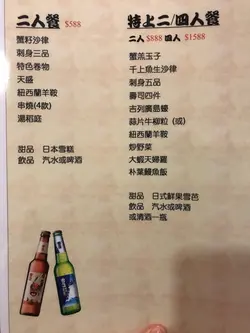 二人餐 $588
蟹籽沙律
刺身三品
特色卷物
天盛
紐西蘭羊鞍
串燒(4款)
湯稻庭
甜品 日本雪糕
飲品 汽水或啤酒
特上二/四人餐
二人 $888 四人 $1588
蟹羔玉子
千上魚生沙律
刺身五品
壽司四件
吉列廣島蠔
蒜片牛柳粒(或)
紐西蘭羊鞍
炒野菜
大蝦天婦羅
朴葉鰻魚飯
甜品 日式鮮果雪芭
飲品 汽水或啤酒
或清酒一瓶